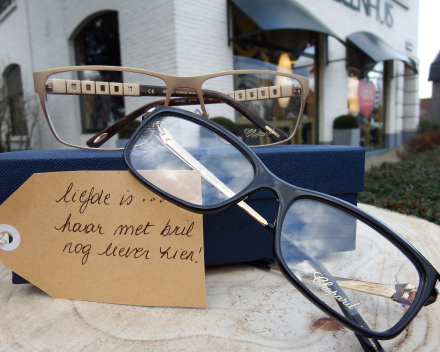 ENHUIS
liefde is ...
haar met bril
nog liever zien!
Chopard
Chopard